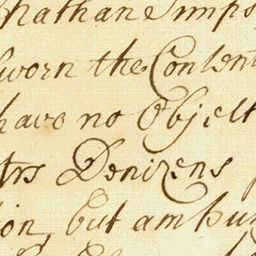 nathan Simps
sworn the Content
have no Object
trs Denizens
ion, but am hum